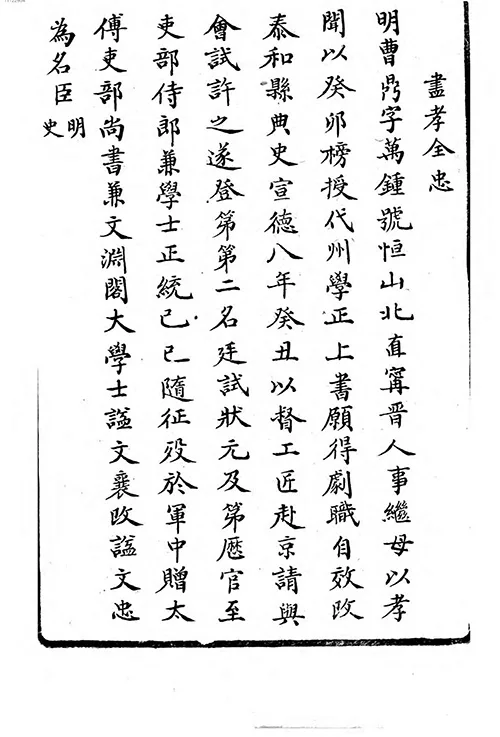 盡孝全忠
明曹鼎字萬鍾號恒山北直寗晋人事繼母以孝
聞以癸卯榜授代州學正上書願得劇職自效改
泰和縣典史宣德八年癸丑以督工匠赴京請與
會試許之遂登第第二名廷試狀元及第歷官至
吏部侍郎兼學士正統己巳隨征歿於軍中贈太
傅吏部尚書兼文淵閣大學士諡文襄改諡文忠
為名臣明史